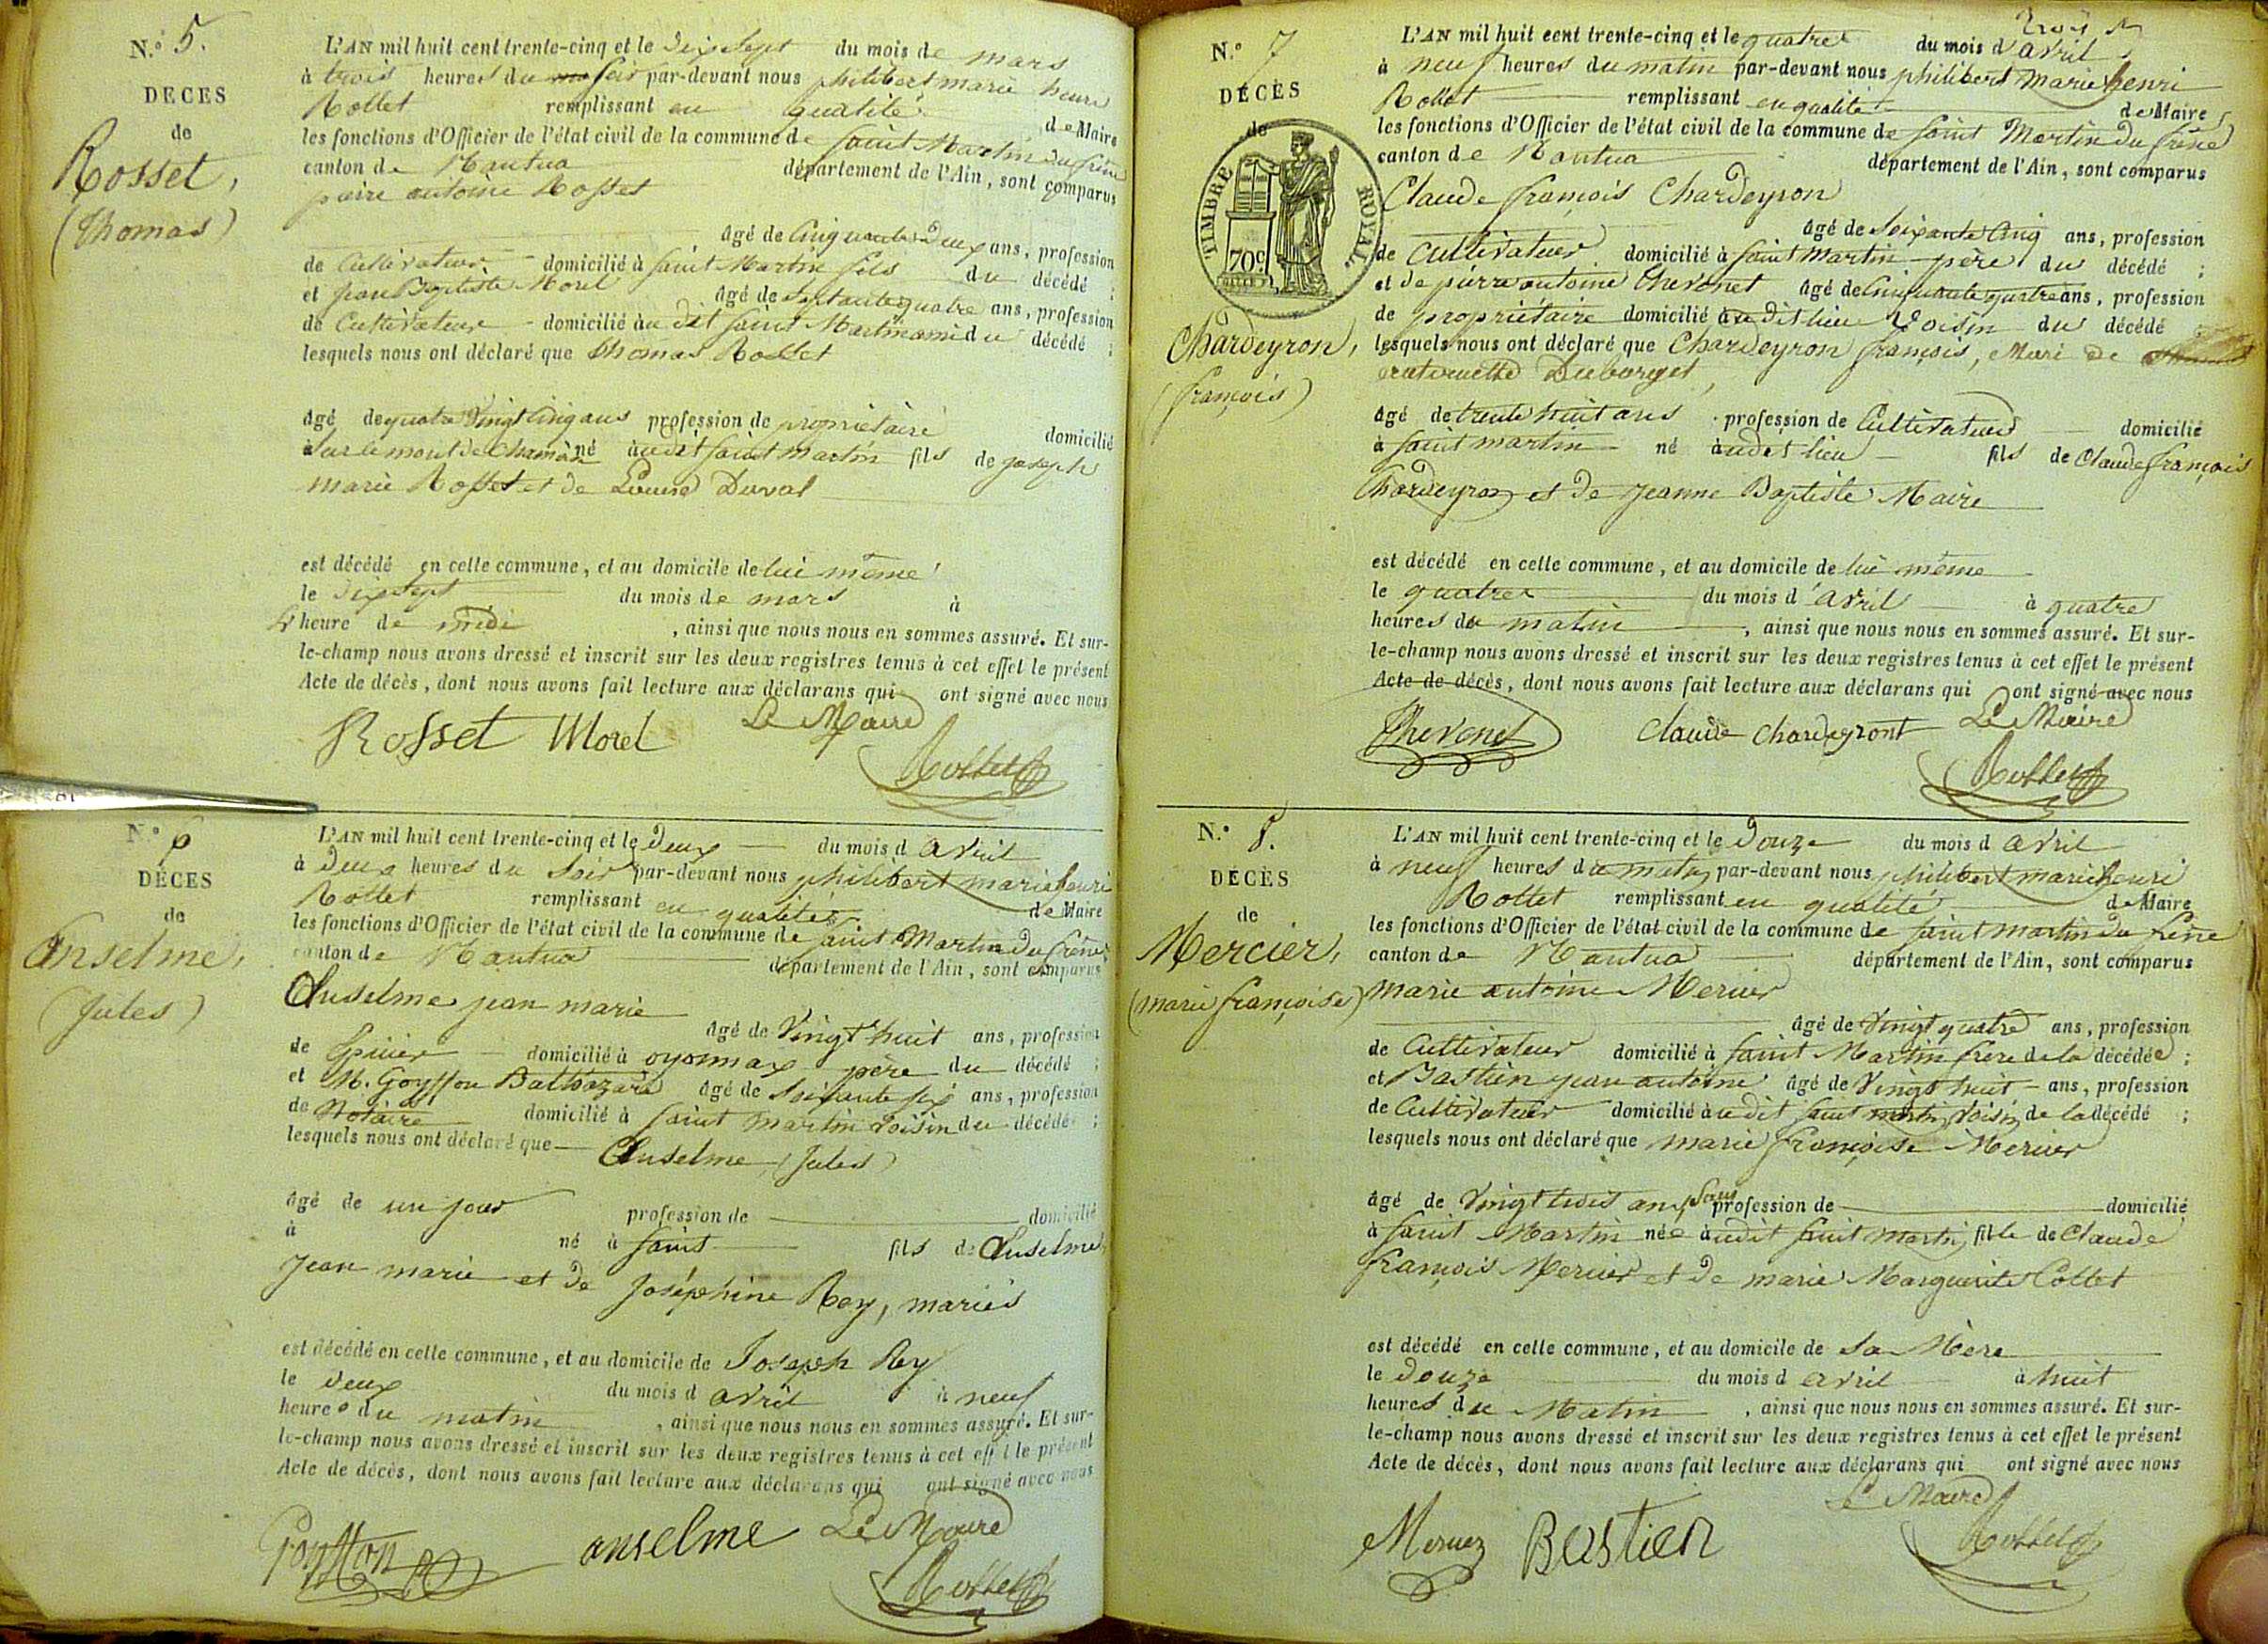 N.° 5.
DÉCÈS
de
Rosset,
(Thomas)
L'AN mil huit cent trente-cinq et le dix sept du mois de mars
à trois heures du soir par-devant nous philibert marie henri
Rollet remplissant en qualité de Maire
les fonctions d'Officier de l'état civil de la commune de saint Martin du frêne
canton de Nantua département de l'Ain, sont comparus
pierre antoine Rosset
âgé de Cinquante deux ans, profession
de Cultivateur domicilié à saint Martin fils du décédé ;
et jean Baptiste Morel âgé de septante quatre ans, profession
de Cultivateur domicilié au dit saint Martin ami du décédé ;
lesquels nous ont déclaré que thomas Rosset
âgé de quatre vingt cinq ans profession de propriétaire domicilié
à sur le mont de né audit saint Martin fils de joseph
marie Rosset et de Louise Duval
est décédé en celle commune, et au domicile de lui même
le dix sept du mois de mars à
heure de midi , ainsi que nous nous en sommes assuré. Et sur-
le-champ nous avons dressé et inscrit sur les deux registres tenus à cet effet le présent
Acte de décès, dont nous avons fait lecture aux déclarans qui ont signé avec nous
Rosset Morel Le Maire
Rollet
N.° 6
DÉCES
de
Anselme,
(Jules)
L'AN mil huit cent trente-cinq et le deux du mois d avril
à deux heures du soir par-devant nous philibert marie henri
Rollet remplissant en qualité de Maire
les fonctions d'Officier de l'état civil de la commune de saint Martin du frêne
canton de Nantua département de l'Ain, sont comparus
Anselme jean marie
âgé de Vingt huit ans, profession
de Epicier domicilié à oyonnax père du décédé ;
et M. Goyffon Balthazard âgé de soixante six ans, profession
de Notaire domicilié à saint Martin voisin du décédé ;
lesquels nous ont déclaré que Anselme (Jules)
âgé de un jour profession de domicilié
à né à saint fils de Anselme
Jean marie et de Joséphine Rey, mariés
est décédé en celle commune, et au domicile de Joseph Rey
le deux du mois d avril à neuf
heures du matin , ainsi que nous nous en sommes assuré. Et sur-
le-champ nous avons dressé et inscrit sur les deux registres tenus à cet effet le présent
Acte de décès, dont nous avons fait lecture aux déclarans qui ont signé avec nous
Goyffon anselme Le Maire
Rollet
trois
N.° 7
DÉCÈS
de
TIMBRE ROYAL.
70c
Chardeyron,
(françois)
L'AN mil huit cent trente-cinq et le quatre du mois d'avril
à neuf heures du matin par-devant nous philibert Marie henri
Rollet remplissant en qualité de Maire
les fonctions d'Officier de l'état civil de la commune de saint Martin du frêne
canton de Nantua département de l'Ain, sont comparus
Claude françois Chardeyron
âgé de soixante cinq ans, profession
de cultivateur domicilié à saint Martin père du décédé ;
et de pierre antoine thevenet âgé de Cinquante quatre ans, profession
de propriétaire domicilié au dit lieu voisin du décédé ;
lesquels nous ont déclaré que Chardeyron françois, Mari de
Duborget,
âgé de trente huit ans profession de Cultivateur domicilié
à saint martin né audit lieu fils de Claude françois
Chardeyron et de Jeanne Baptiste Maire
est décédé en celle commune, et au domicile de lui même
le quatre du mois d'avril à quatre
heures du matin , ainsi que nous nous en sommes assuré. Et sur-
le-champ nous avons dressé et inscrit sur les deux registres tenus à cet effet le présent
Acte de décès, dont nous avons fait lecture aux déclarans qui ont signé avec nous
Thevenet Claude chardeyront Le Maire
Rollet
N.° 8.
DÉCÈS
de
Mercier,
(marie françoise)
L'AN mil huit cent trente-cinq et le douze du mois d avril
à neuf heures du matin par-devant nous philibert marie henri
Rollet remplissant en qualité de Maire
les fonctions d'Officier de l'état civil de la commune de saint martin du frêne
canton de Nantua département de l'Ain, sont comparus
Marie antoine Mercier
âgé de Vingt quatre ans, profession
de Cultivateur domicilié à saint Martin frère de la décédée ;
et Bastien jean antoine âgé de Vingt huit ans, profession
de Cultivateur domicilié audit saint martin, voisin de la décédé ;
lesquels nous ont déclaré que marie françoise Mercier
âgé de Vingt trois ans, sans profession de domicilié
à saint Martin née audit saint martin, fille de Claude
françois Mercier et de marie Marguerite Collet
est décédé en celle commune, et au domicile de sa Mère
le douze du mois d avril à huit
heures du Matin , ainsi que nous nous en sommes assuré. Et sur-
le-champ nous avons dressé et inscrit sur les deux registres tenus à cet effet le présent
Acte de décès, dont nous avons fait lecture aux déclarans qui ont signé avec nous
Le Maire
Bastien Rollet